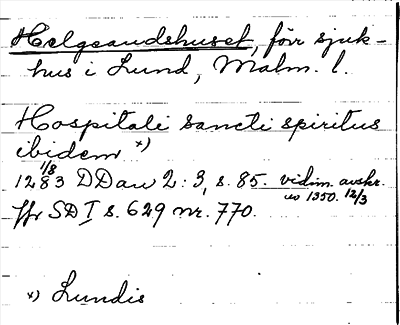 Helgeandshuset, förr sjuk-
hus i Lund, Malm. l.
Hospitali sancti spiritus
ibidem x)
1/8
1283 DDan 2:3, s. 85. vidim. avskr.
av 1350. 12/3
Jfr SD I s. 629 nr. 770.
x) Lundis